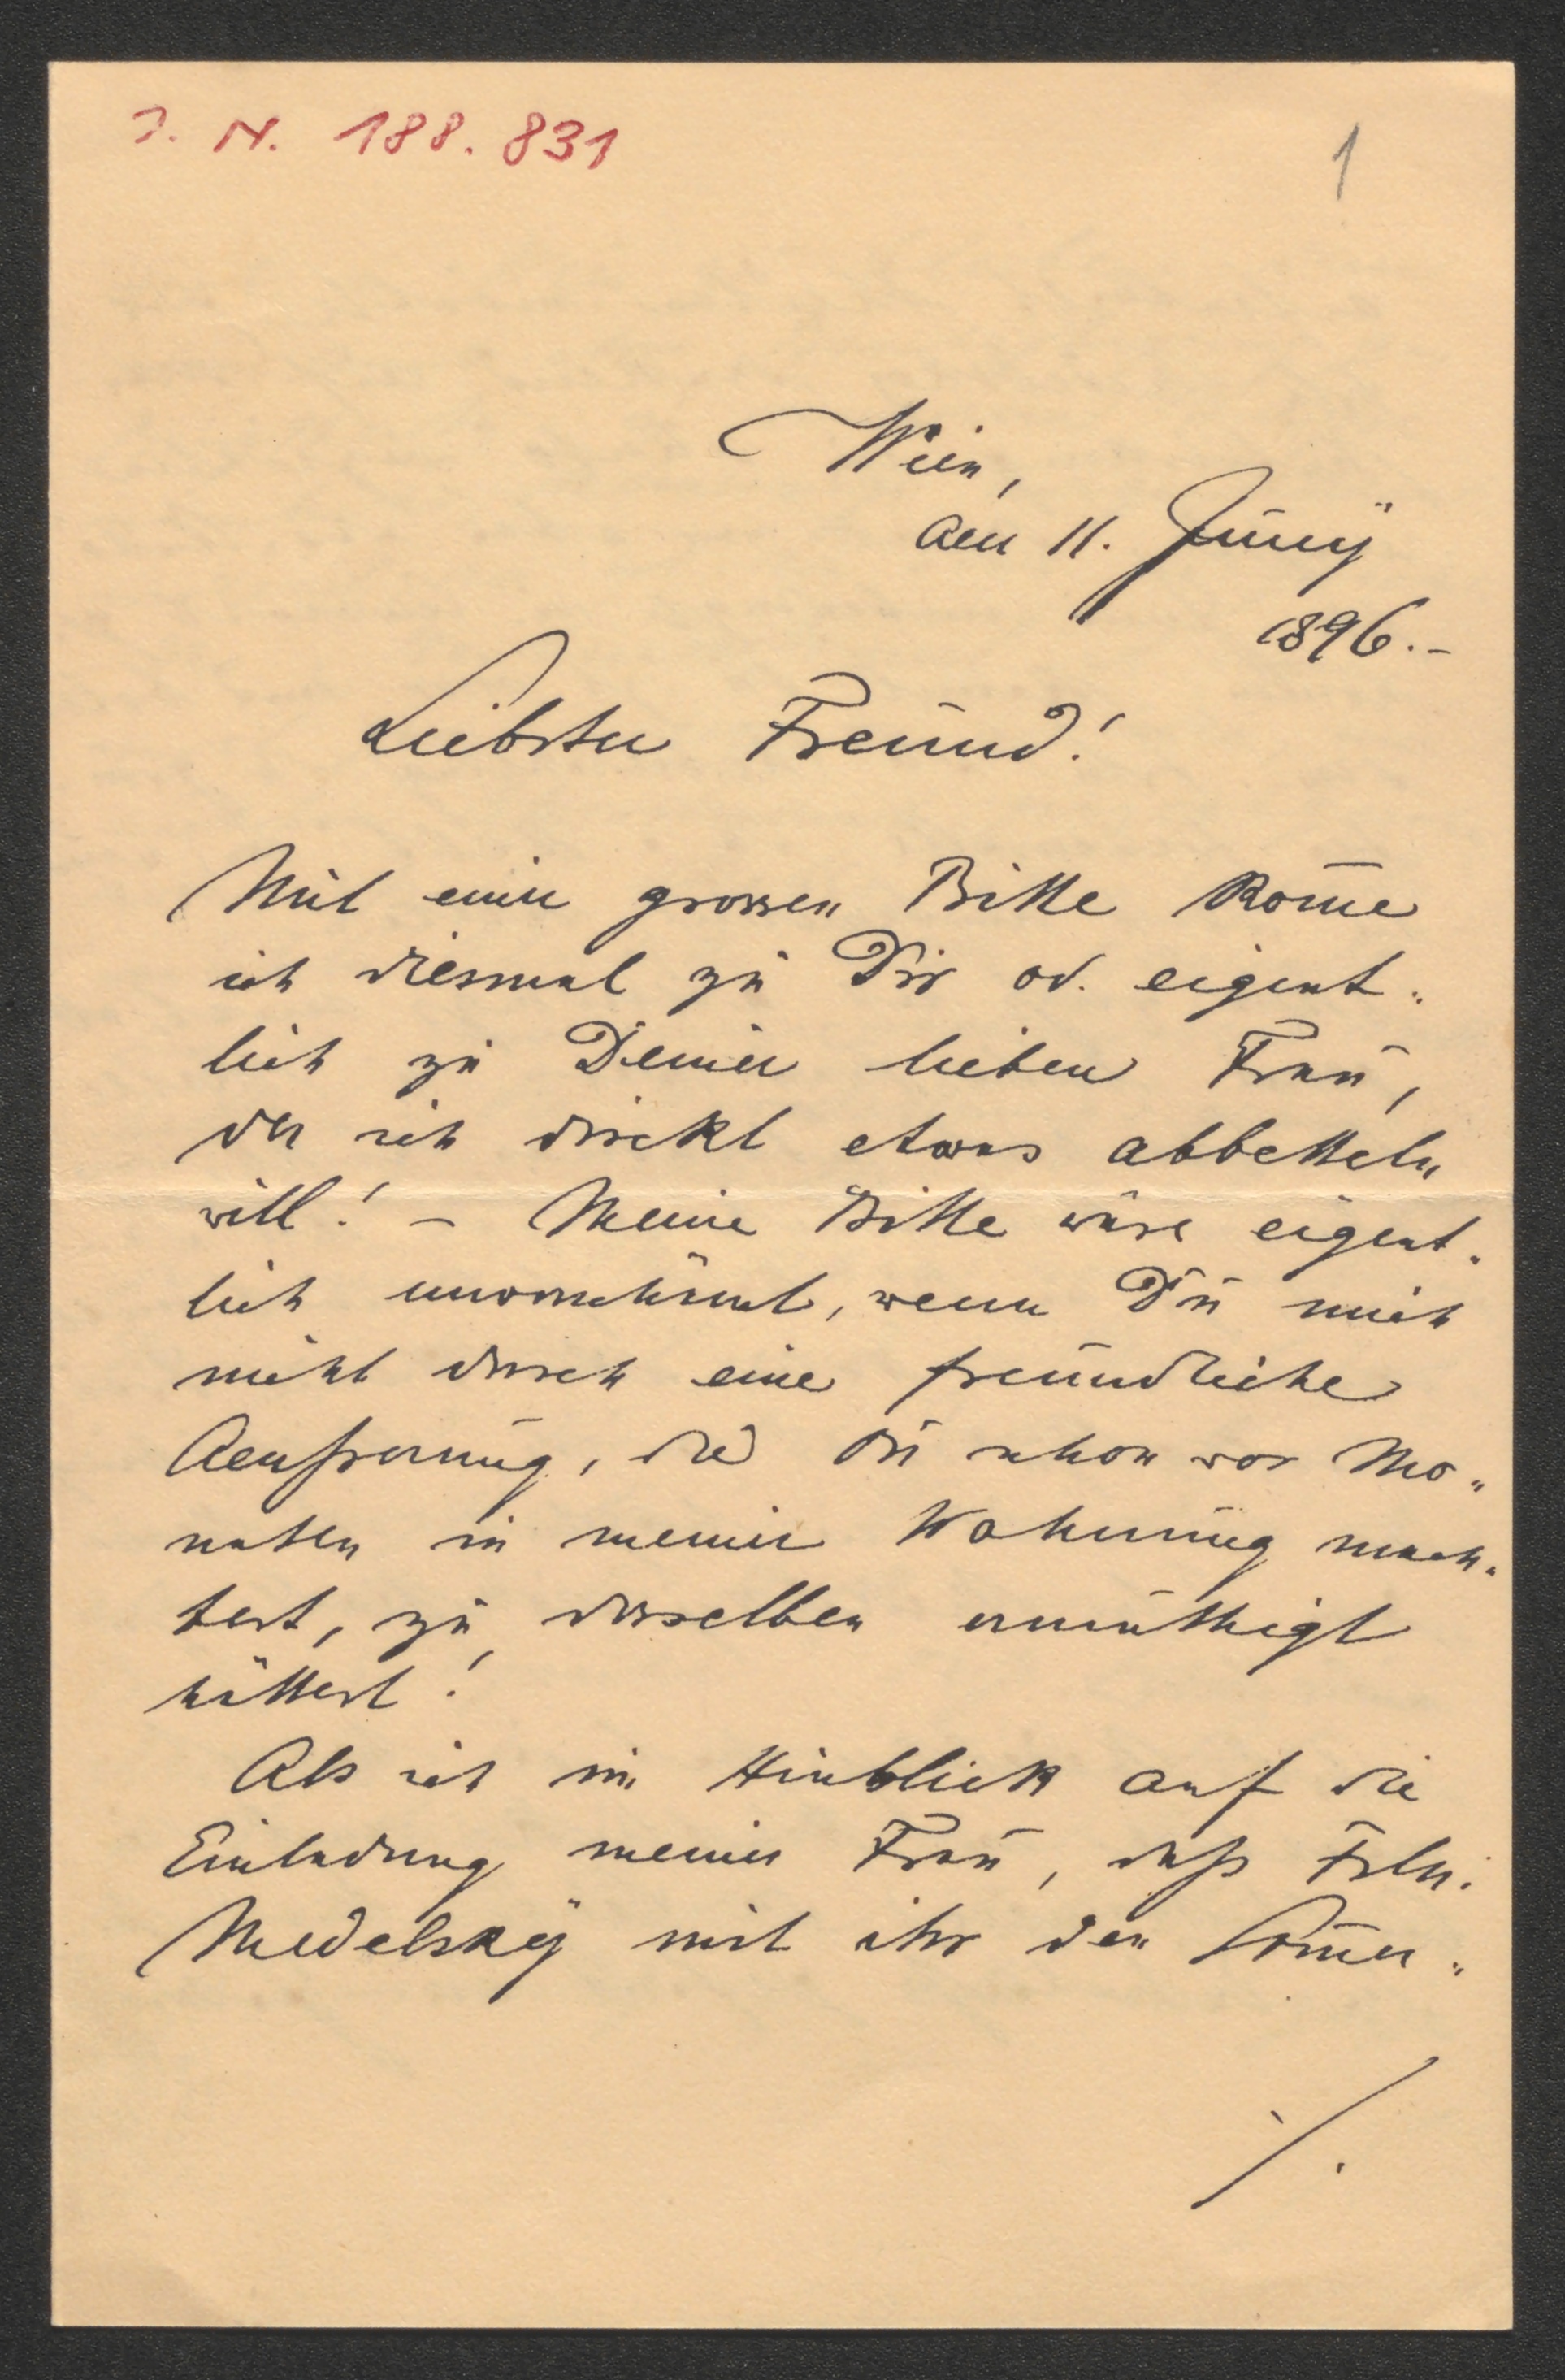 I. N. 188.831
1
Wien,
den 11. Juny
1896.-
Liebster Freund!
Mit einer grossen Bitte kom̅e
ich diesmal zu Dir od. eigent„
lich zu Deiner lieben Frau,
der ich direkt etwas abbetteln
will! – Meine Bitte wäre eigent„
lich unverschämt, wenn Du mich
nicht durch eine freundliche
Aeußerung, die Du schon vor Mo„
naten in meiner Wohnung mach„
test, zu derselben ermuthigt
hättest!
Als ich im Hinblick auf die
Einladung meiner Frau, daß Frln.
Medelsky mit ihr den Som̅er„
./.